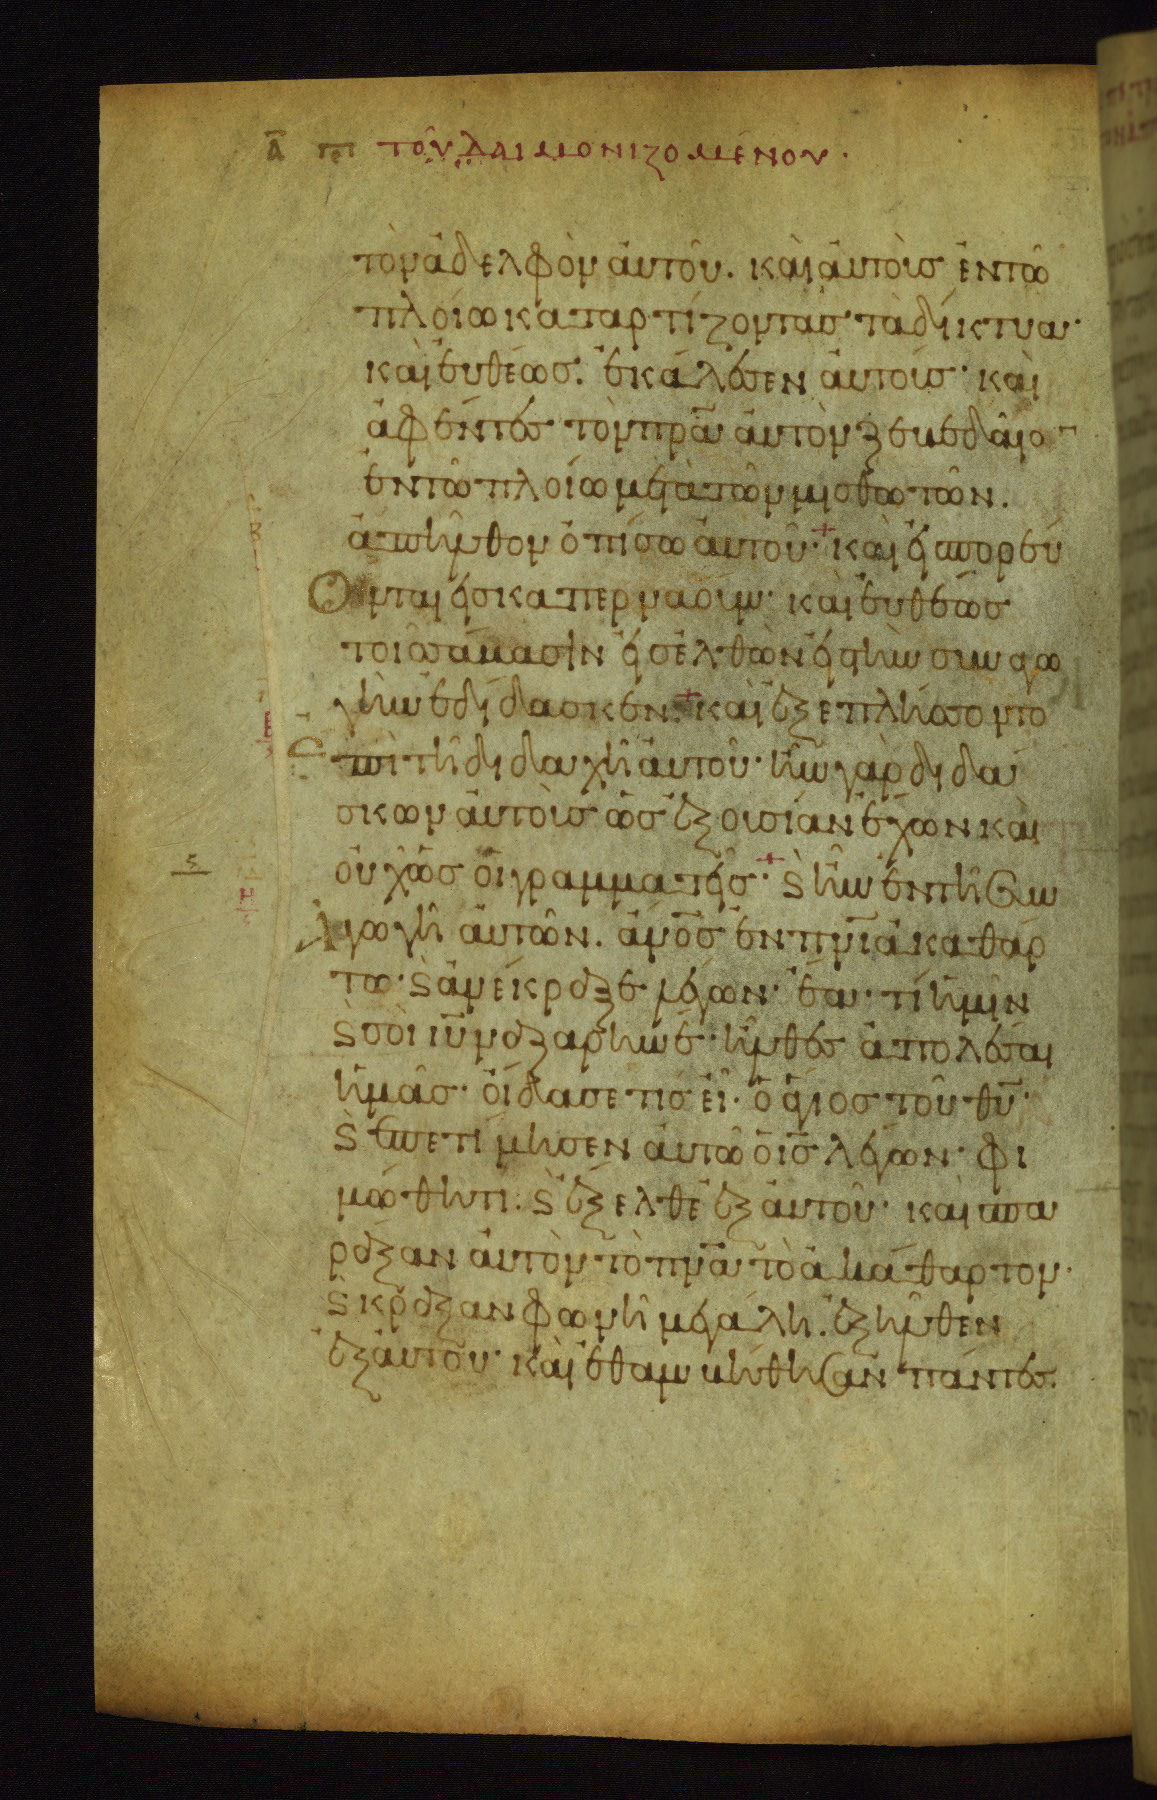 Α̅ πε τοῦ δαιμονιζομένου.
τὸν ἀδελφὸν αὐτοῦ. καὶ αὐτοὺς ἐν τῶ
πλοίω καταρτίζοντας τὰ δίκτυα·
καὶ εὐθέως. ἐκάλεσεν αὐτούς· καὶ
ἀφέντες τὸν πρ̅α αὐτὸν ζεβεδαῖο
ἐν τῶ πλοίω μετὰ τῶν μισθωτῶν.
ἀπῆλθον ὀπίσω αὐτοῦ· + καὶ εἰσπορεύ
Ονται εἰς καπερναούμ· καὶ εὐθέως
τοῖς σάβασιν εἰσελθὼν εἰς τὴν συναγω
γὴν ἐδίδασκεν. + καὶ ἐξεπλήσσοντο
Ἐπὶ τῆ διδαχῆ αὐτοῦ· ἦν γὰρ διδά
σκων αὐτοὺς ὡς ἐξουσίαν ἔχων καὶ
οὐχ ὡς οἱ γραμματεῖς· + ϛ ἦν ἐν τῆ συν
Αγωγῆ αὐτῶν. ἀν̅ος ἐν πν̅ι ἀκαθάρ
τω· ϛ ἀνέκραξε λέγων· ἔα· τί ἡμῖν
ϛ σοὶ ιυ̅ ναζαρηνέ· ἦλθες ἀπολέσαι
ἡμᾶς· οἶδα σε τίς εἶ· ὁ ἅγιος τοῦ θυ̅·
ϛ ἐπετίμησεν αὐτῶ ὁ ις̅ λέγων· φι
μώθητι. ϛ ἔξελθε ἐξ αὐτοῦ· καὶ σπα
ράξαν αὐτὸν τὸ πν̅α τὸ ἀκάθαρτον·
ϛ κράξαν φωνῆ μεγάλη. ἐξῆλθεν
ἐξ αὐτοῦ· καὶ ἐθαμβήθησαν πάντες.